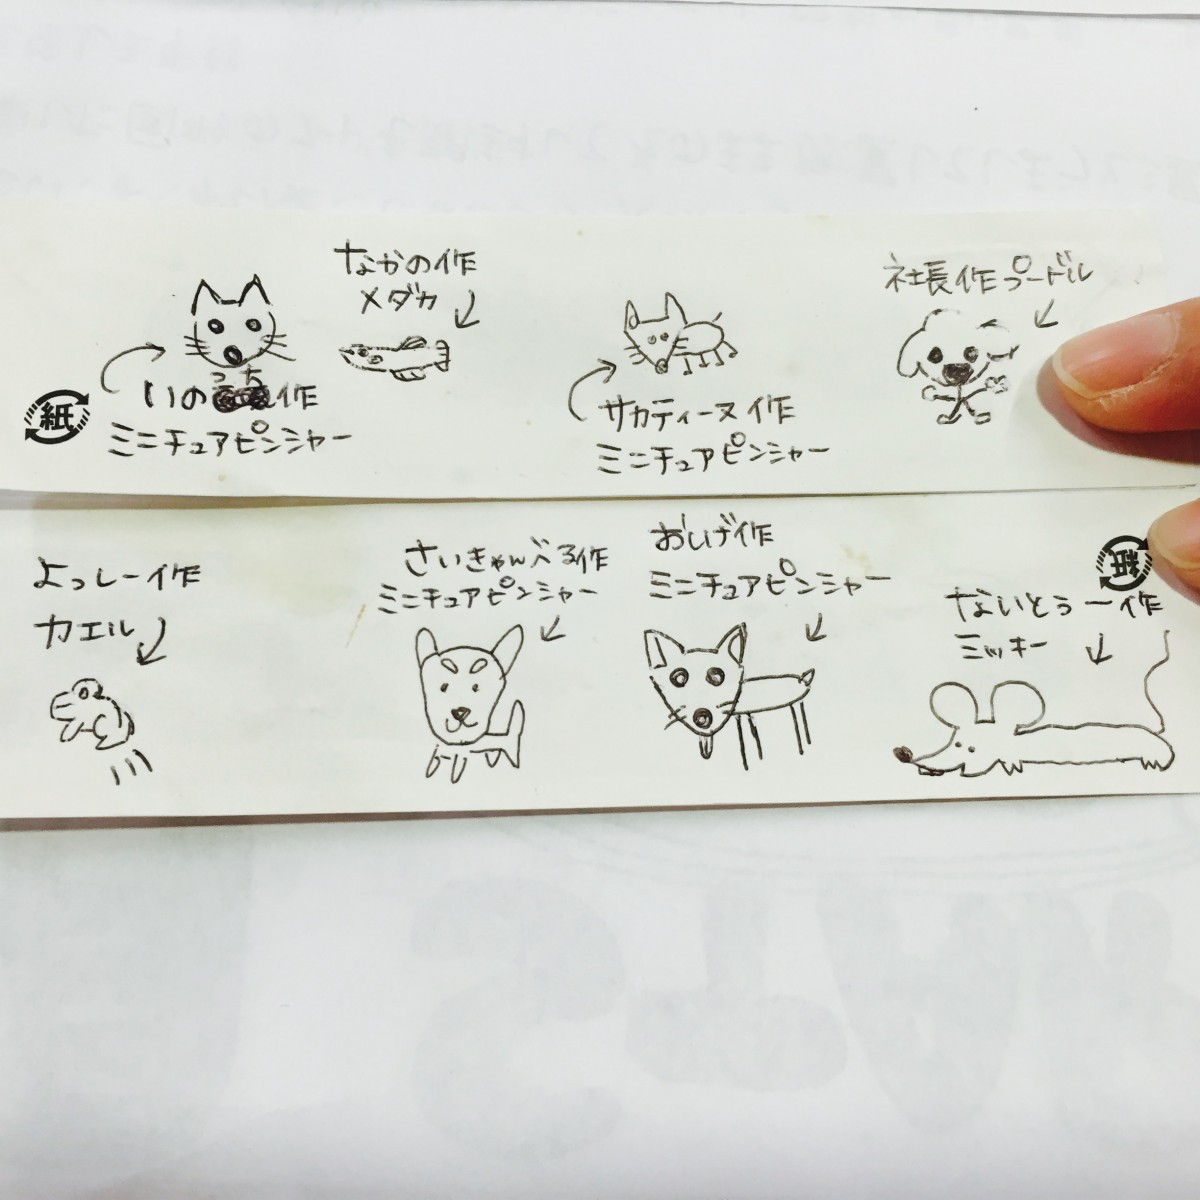 なかの作
メダカ
社長作プードル
っち
いの作
ミニチュアピンシャー
サカティーヌ作
ミニチュアピンシャー
紙
よっしー作
カエル
さいきゃんべる作
ミニチュアピンシャー
おしげ作
ミニチュアピンシャー
紙
ないとぅー作
ミッキー